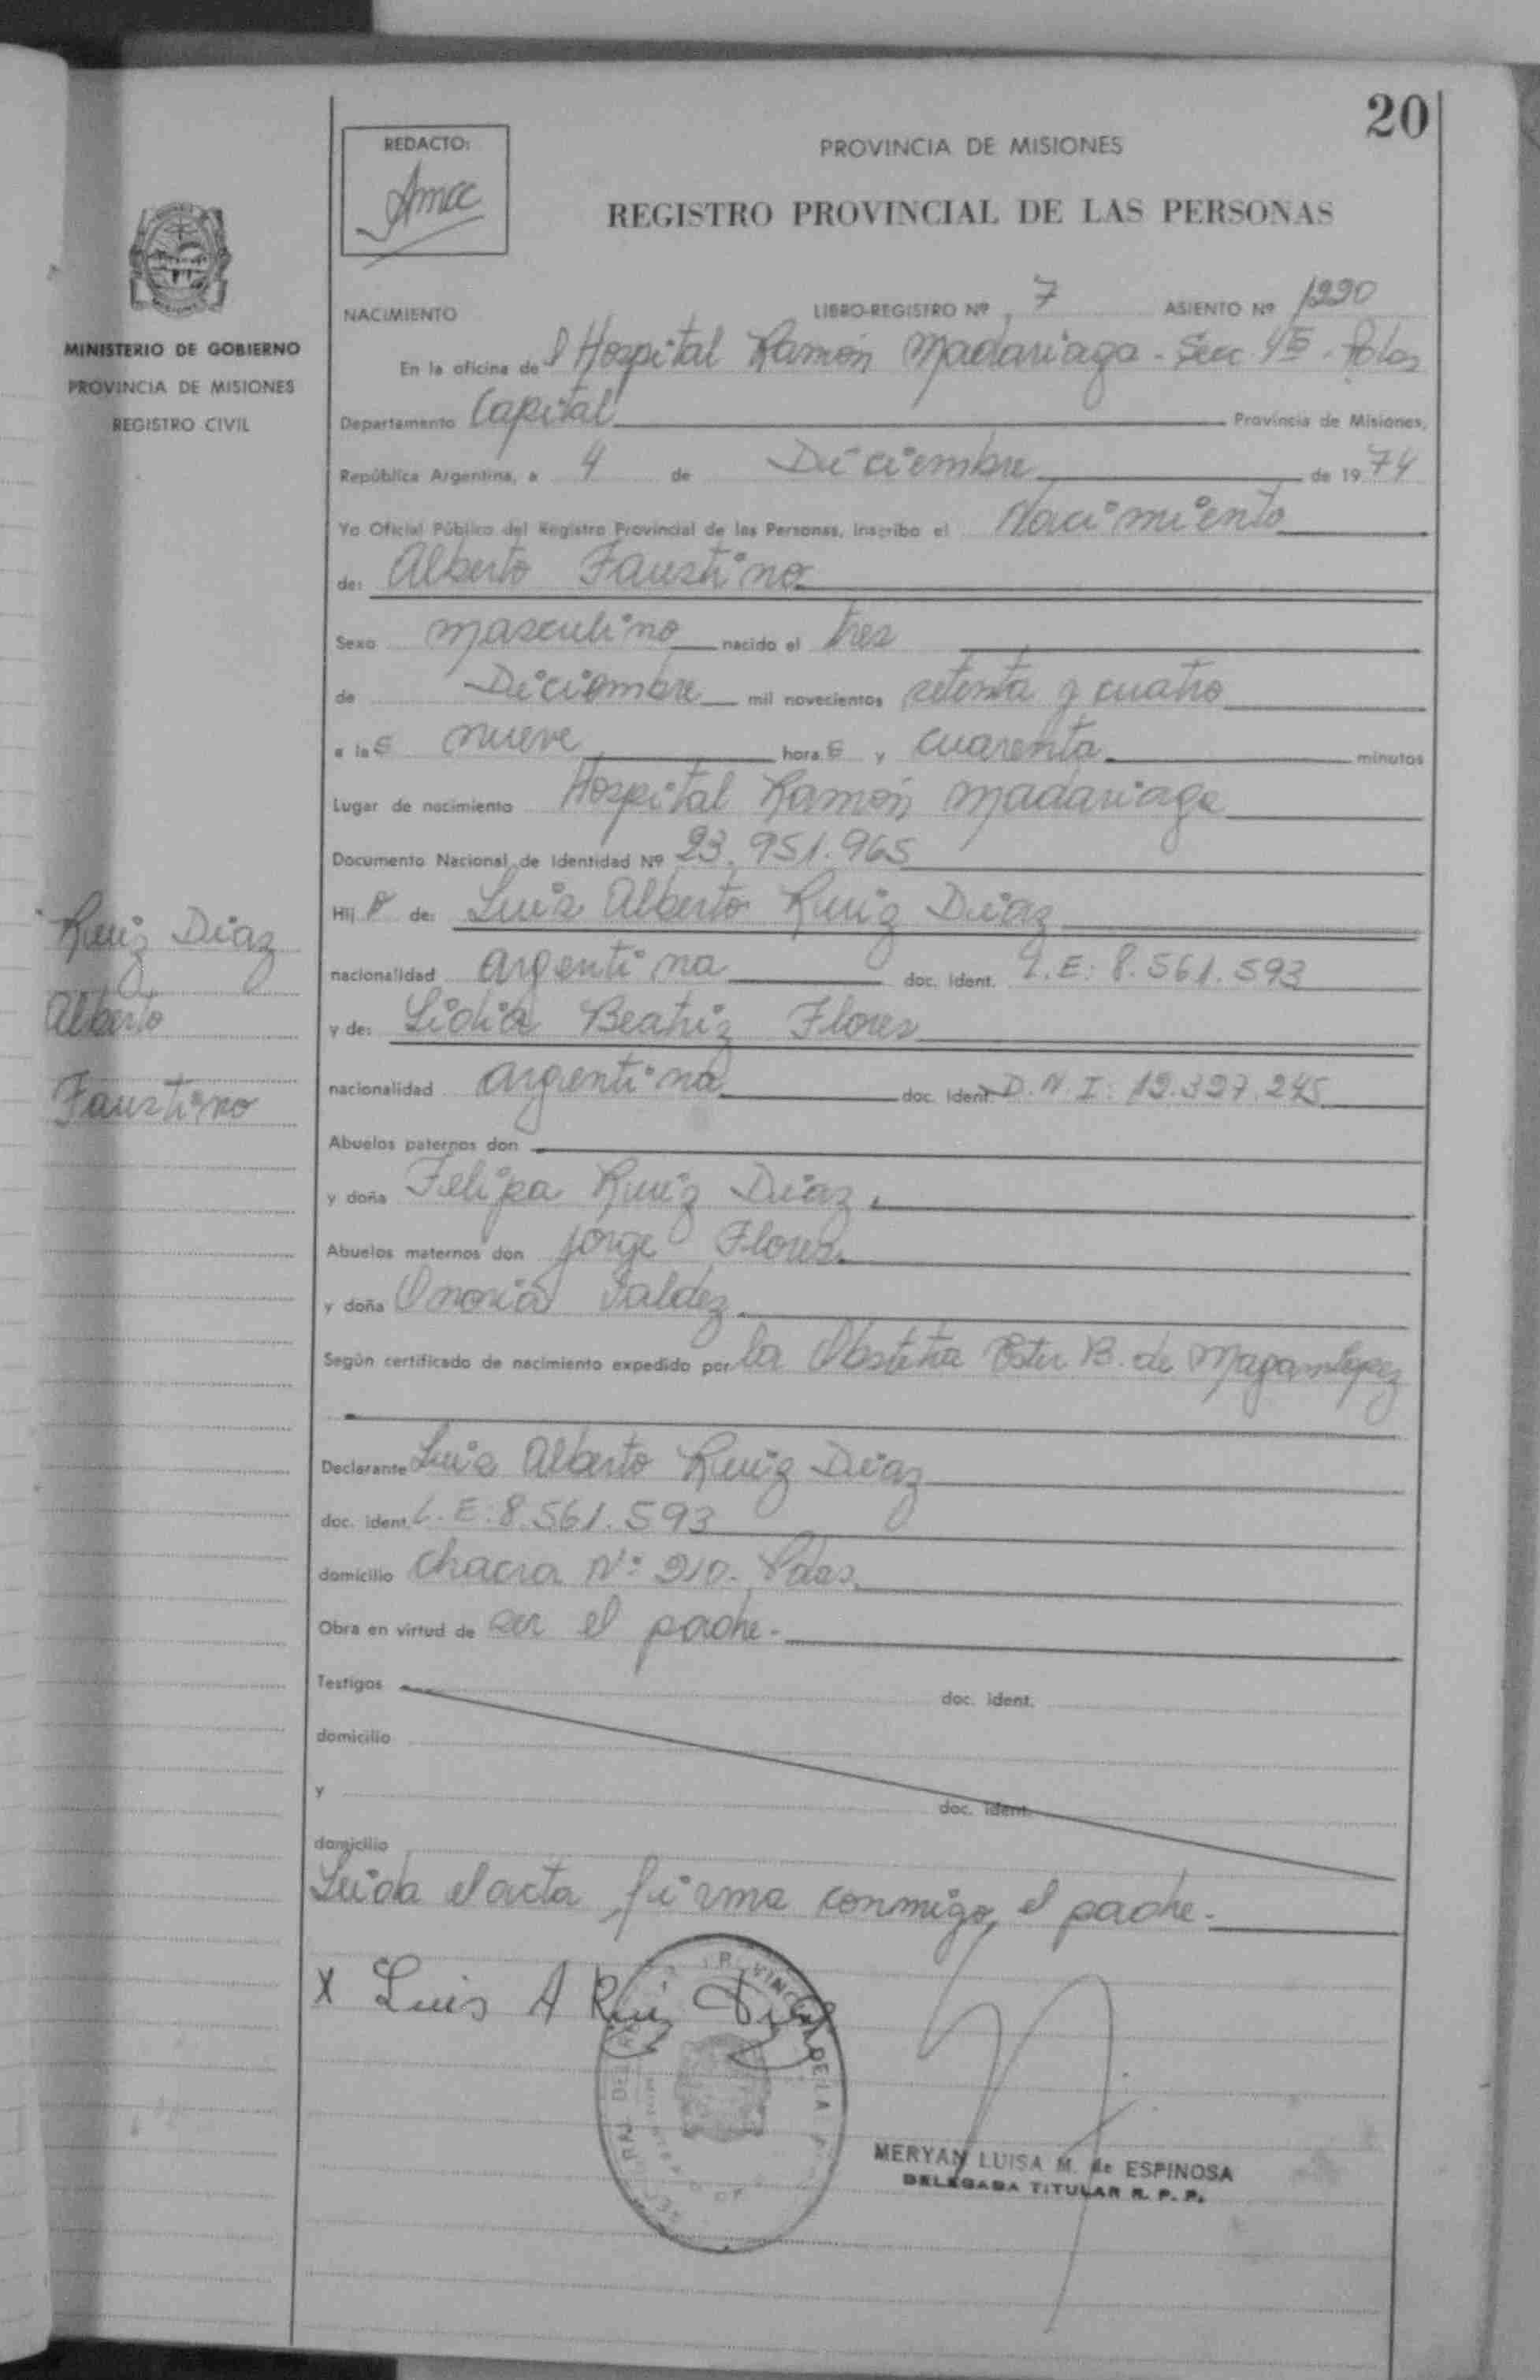 20
REDACTO:
PROVINCIA DE MISIONES
REGISTRO PROVINCIAL DE LAS PERSONAS
MINISTERIO DE GOBIERNO
PROVINCIA DE MISIONES
REGISTRO CIVIL
NACIMIENTO LIBRO-REGISTRO Nº 7 ASIENTO Nº 1220
En la oficina del Hospital Ramón Madariaga - Secc. 4ª - Pdas
Departamento Capital Provincia de Misiones,
República Argentina, a 4 de Diciembre de 1974
Yo Oficial Público del Registro Provincial de las Personas, inscribo el Nacimiento
de: Alberto Faustino
Sexo masculino nacido el tres
de Diciembre mil novecientos setenta y cuatro
a las nueve horas y cuarenta minutos
Lugar de nacimiento Hospital Ramón Madariaga
Documento Nacional de Identidad Nº 23.951.965
Hijo de: Luis Alberto Ruiz Diaz
nacionalidad argentina doc. ident. L.E: 8.561.593
y de: Lidia Beatriz Flores
nacionalidad argentina doc. ident. D.N.I: 12.327.245
Ruiz Diaz
Alberto
Faustino
Abuelos paternos don
y doña Felipa Ruiz Diaz.
Abuelos maternos don Jorge Flores.
y doña Onoria Valdez
Según certificado de nacimiento expedido por la Obstetra Ester B. de
Declarante Luis Alberto Ruiz Diaz
doc. ident. L.E: 8.561.593
domicilio Chacra Nº 210. Pdas.
Obra en virtud de ser el padre.
Testigos doc. ident.
domicilio
y doc. ident.
domicilio
Leida el acta firma conmigo, el padre.
X Luis A Ruiz Diaz
MERYAN LUISA M. de ESPINOSA
DELEGADA TITULAR R. P. P.